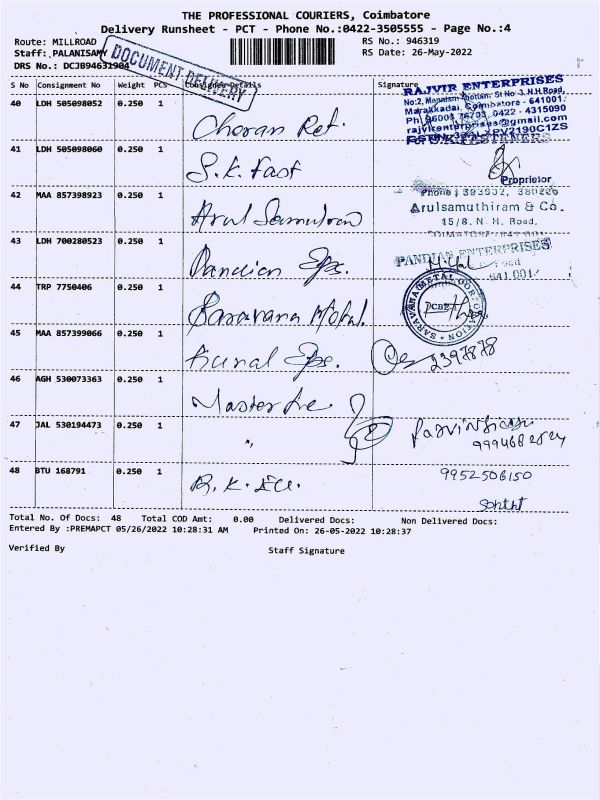 THE PROFESSIONAL COURIERS, Coimbatore
Delivery Runsheet - PCT - Phone No.:0422-3505555 - Page No.:4
Route: MILLROAD RS No.: 946319
Staff: PALANISAMY RS Date: 26-May-2022
DRS No.: DCJB94631904
DOCUMENT DELIVERY
S No Consignment No Weight PCS Consignee Details Signature
40 LDH 505098052 0.250 1
RAJVIR ENTERPRISES
St No 3, N.H.Road,
Marakkadai, Coimbatore - 641001.
0422 - 4315090
rajvirenterprises@gmail.com
41 LDH 505098060 0.250 1 S.K. Fast
Proprietor
42 MAA 857398923 0.250 1
Arulsamuthiram & Co.
15/8, N. H. Road,
43 LDH 700280523 0.250 1 Pandian Eps.
PANDIAN ENTERPRISES
641 001.
44 TRP 7750406 0.250 1 Saravana Metal.
SARAVANA METAL CORPORATION
45 MAA 857399066 0.250 1 Kunal Eps.
2397878
46 AGH 530073363 0.250 1
47 JAL 530194473 0.250 1 "
48 BTU 168791 0.250 1
9952506150
Total No. Of Docs: 48 Total COD Amt: 0.00 Delivered Docs: Non Delivered Docs:
Entered By :PREMAPCT 05/26/2022 10:28:31 AM Printed On: 26-05-2022 10:28:37
Verified By Staff Signature